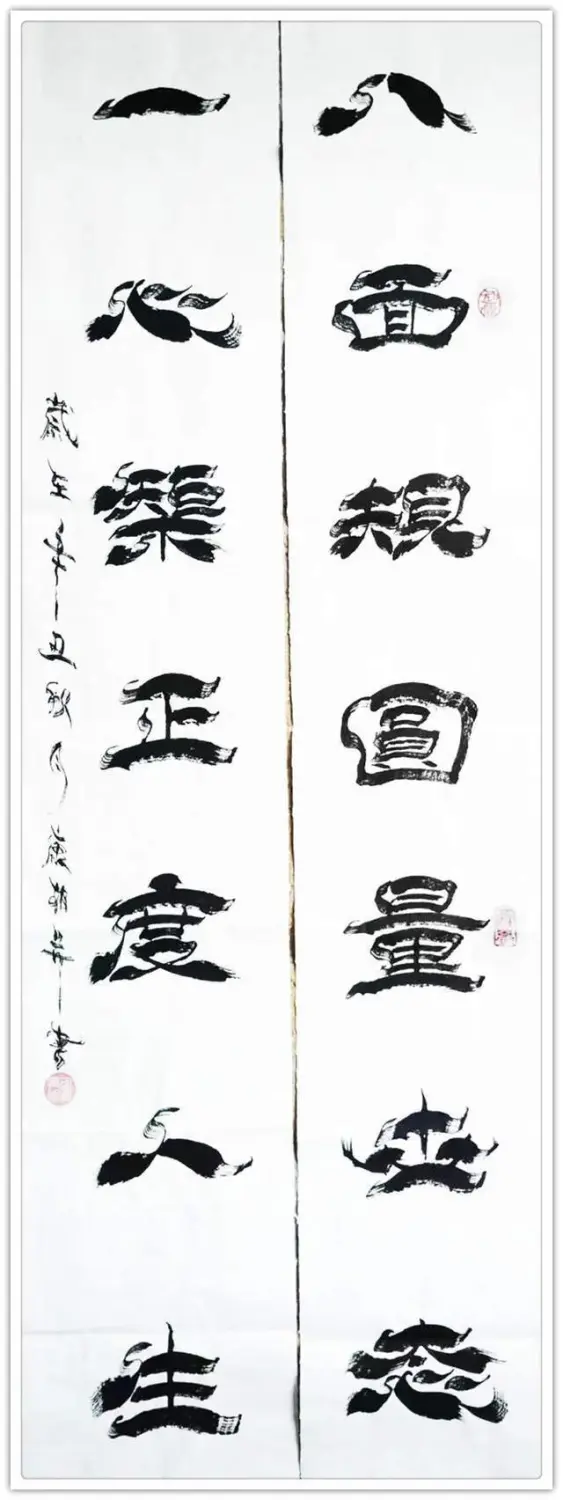 八面規圓量世态
一心榘正度人生
歲在辛丑秋月